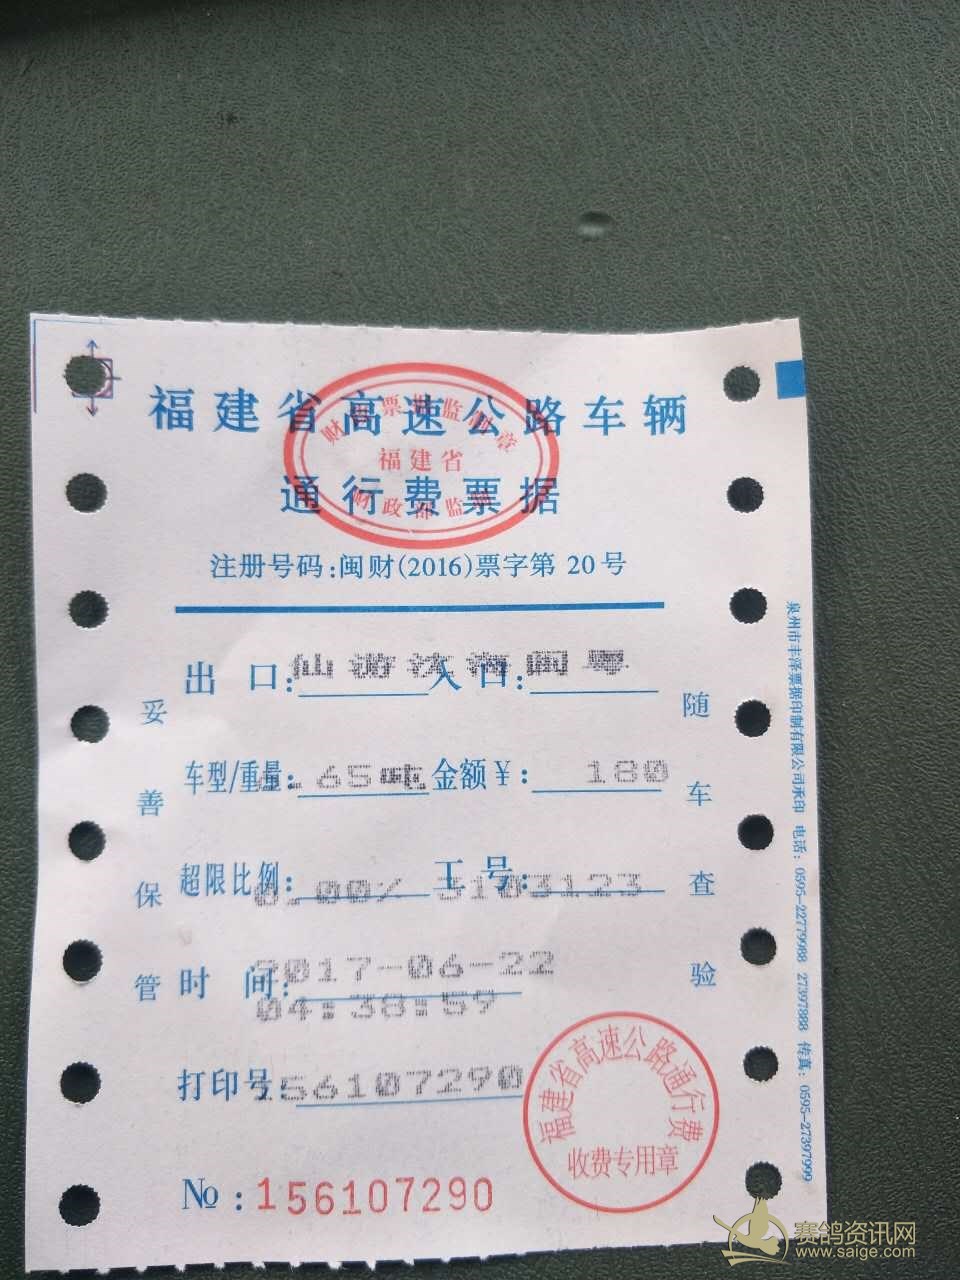 福建省高速公路车辆
通行费票据
财政票据监制章
福建省
财政部监制
注册号码:闽财(2016)票字第 20号
出 口:仙游沈海 入 口:闽粤
车型/重量: 6.65吨 金额¥: 180
超限比例: 0.00% 工 号: 3103123
时 间: 2017-06-22
04:38:59
打印号 156107290
№:156107290
妥善保管
随车查验
福建省高速公路通行费
收费专用章
泉州市丰泽票据印制有限公司承印 电话: 0595-22779988 27397888 传真: 0595-27397999
赛鸽资讯网
www.saige.com